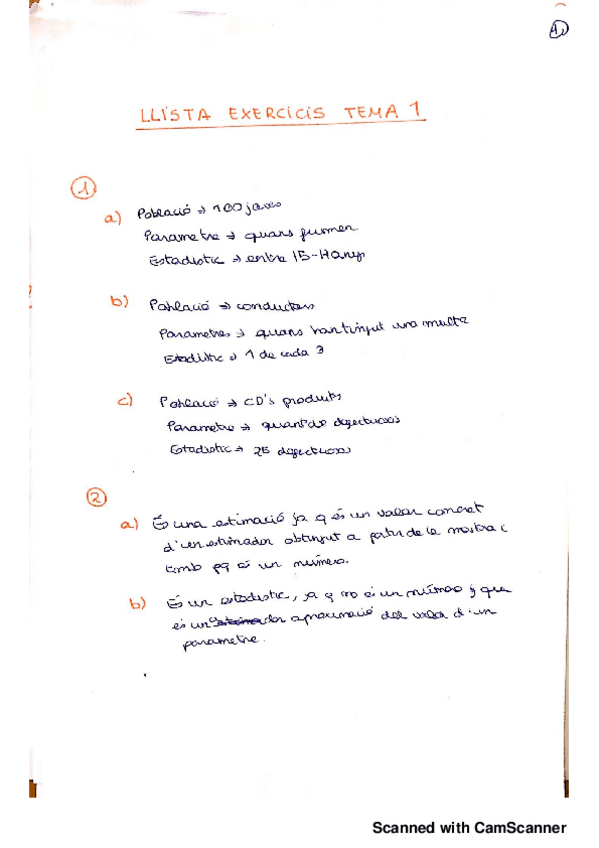 A
LLISTA EXERCICIS TEMA 1
1
a) Població → 100 joves
Parametre → quans fumen
Estadistic → entre 15-
b) Població → conductors
Parametres → quans han tingut una multa
Estadistic → 1 de cada 3
c) Població → CD's produits
Parametre → quantitat defectuosos
Estadistic → 25 defectuosos
2
a) És una estimació ja q és un valor concret
d'un estimador obtingut a partir de la mostra i
tmb pq és un número.
b) És un estadistic, ja q no és un número i que
és un aproximació del valor d'un
parametre.
Scanned with CamScanner